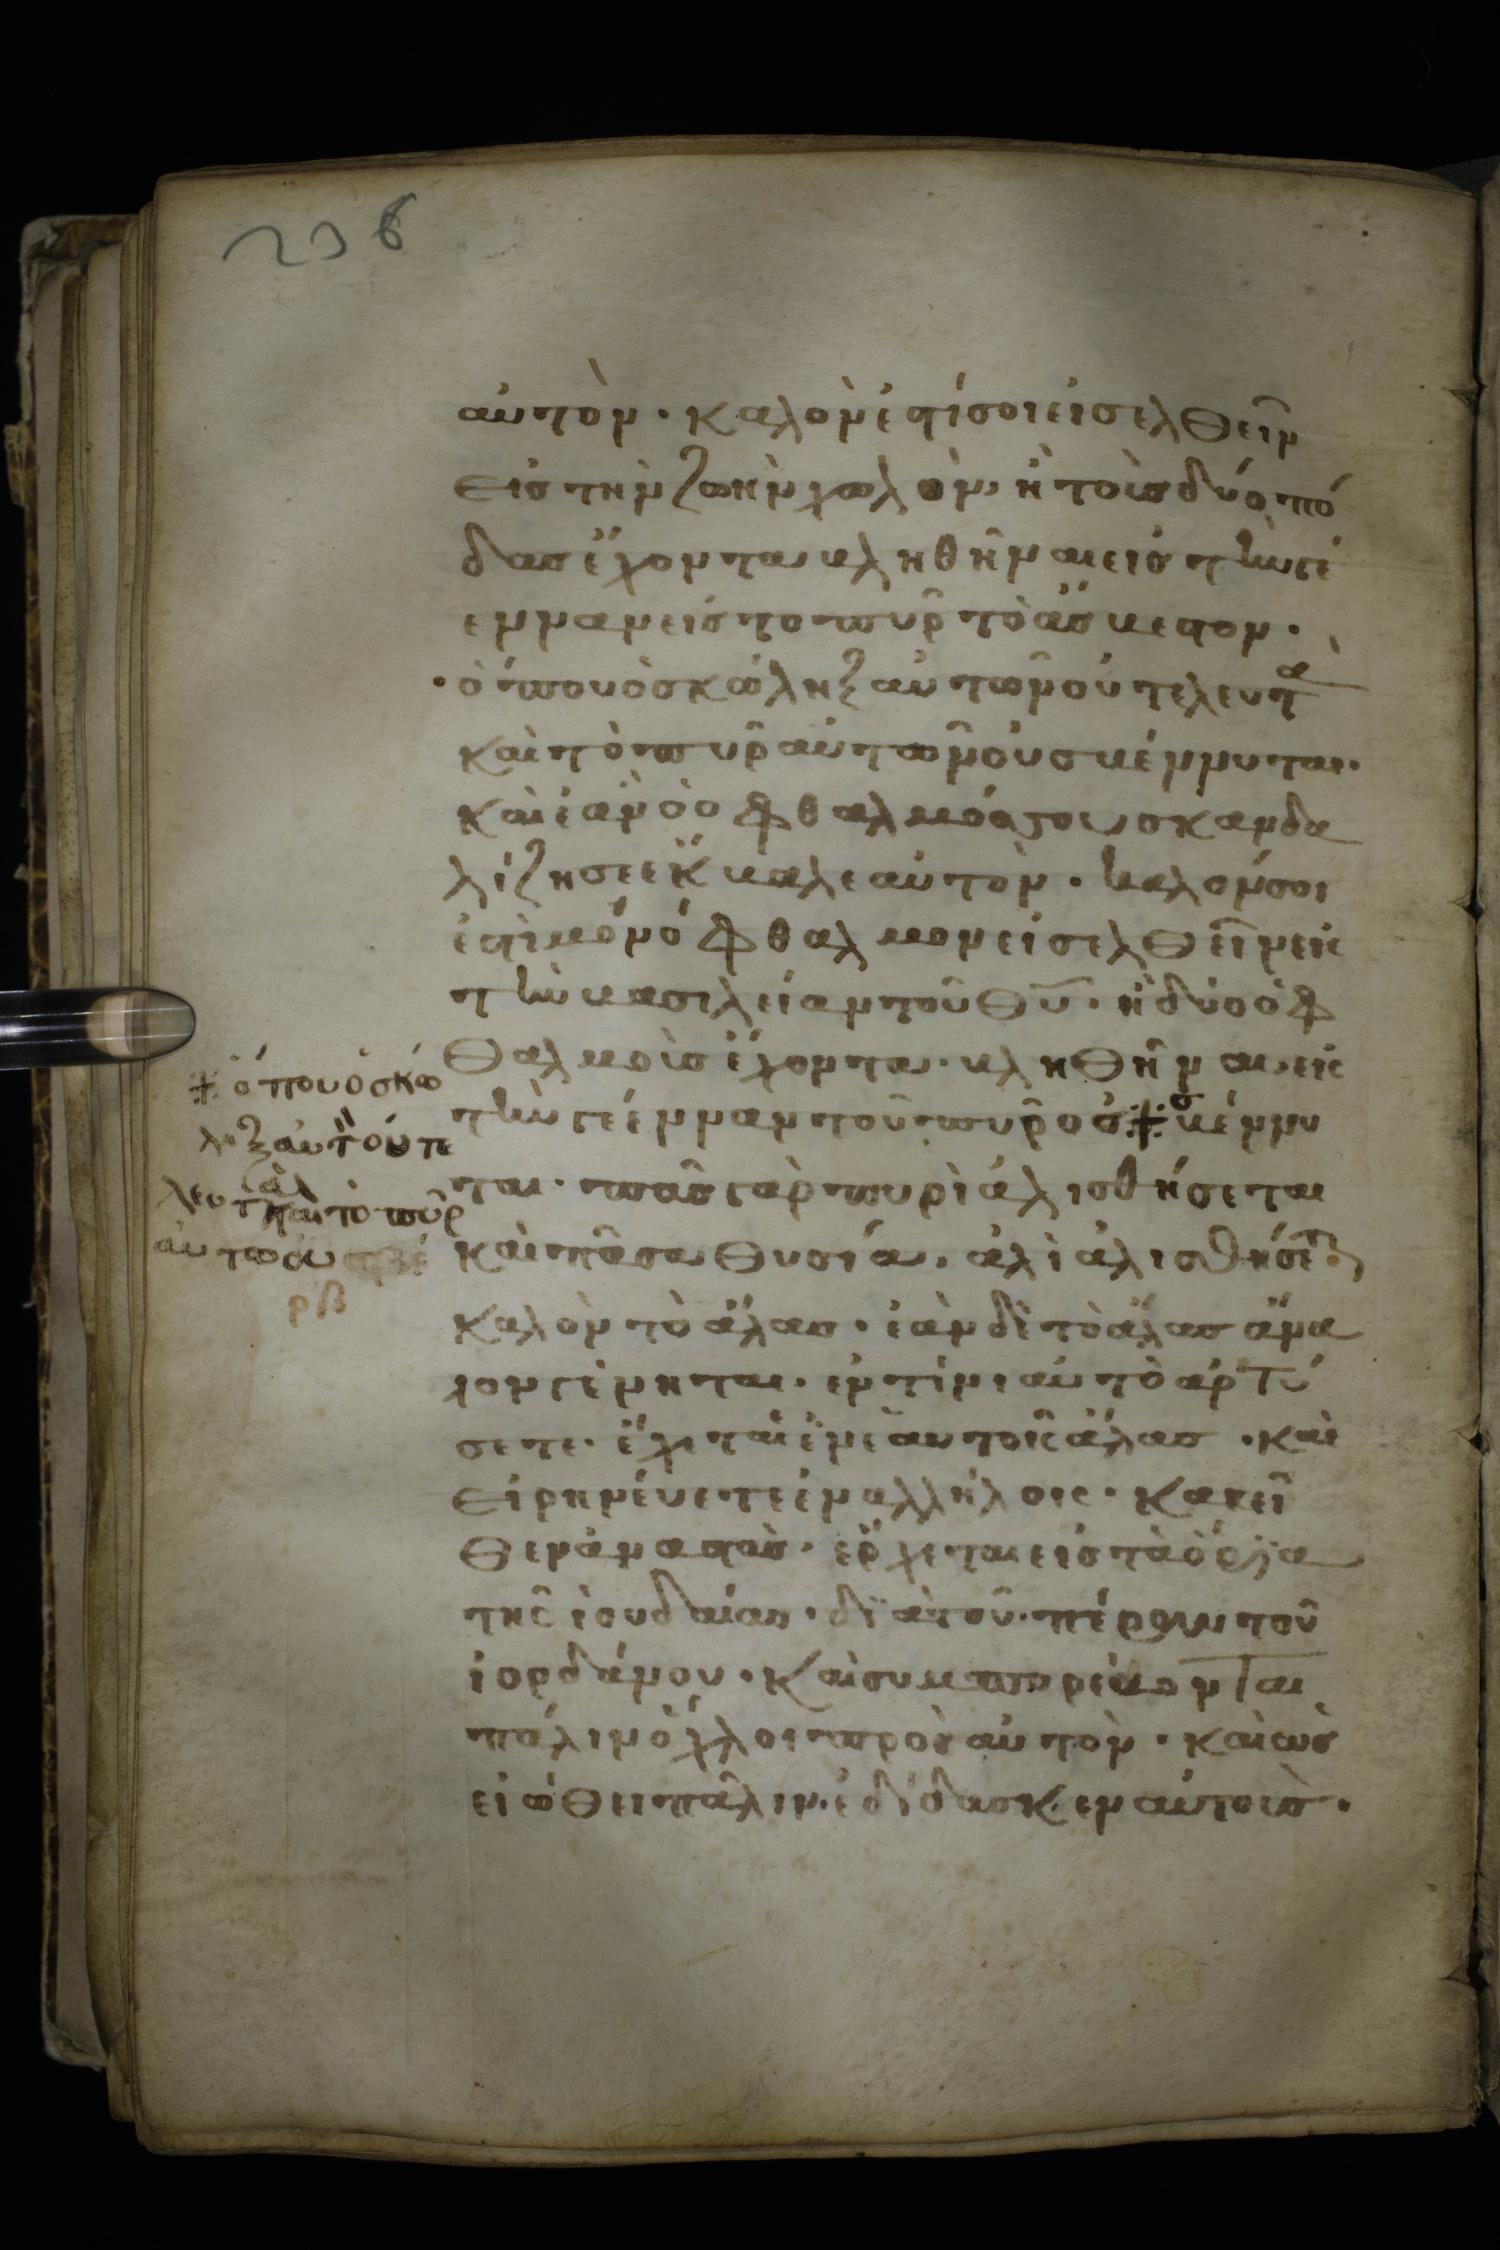 206
αὐτὸν · καλὸν ἐστί σοι εἰσελθεῖν
εἰς τὴν ζωὴν χωλὸν, ἢ τοὺς δύο πό
δας ἔχοντα βληθῆναι εἰς τὴν γέ
ενναν εἰς το πῦρ τὸ ἄσβεστον ·
· ὁ που ὁ σκώληξ αὐτῶν οὐ τελευτᾶ
καὶ τὸ πῦρ αὐτῶν οὐ σβέννυται ·
καὶ ἐὰν ὁ ὀφθαλμός σου σκανδα
λίζη σε ἔκβαλε αὐτὸν · καλόν σοι
ἐστὶ μονόφθαλμον εἰσελθεῖν εἰς
τὴν βασιλείαν τοῦ θ̅υ̅ · ἢ δύο ὀφ
θαλμοὺς ἔχοντα · βληθῆναι εἰς
τὴν γέενναν τοῦ πυρὸς ⁜ σβέννυ
ται · πᾶς γὰρ πυρὶ ἁλισθήσεται
καὶ πᾶσα θυσία · ἁλὶ ἁλισθήσετ
καλὸν τὸ ἅλας · ἐὰν δὲ τὸ ἅλας ἄνα
λον γένηται · ἐν τίνι αὐτὸ ἀρτύ
σετε · ἔχεται ἐν ἑαυτοῖς ἅλας · καὶ
εἰρηνέυετε ἐν αλλήλοις · κακεῖ
θεν ἀναστὰς · ἔρχεται εἰς τὰ ὅρια
τῆς ἰουδαίας · διὰ τοῦ πέραν τοῦ
ἰορδάνου · καὶ συμπορεύονται
πάλιν ὄχλοι πρὸς αὐτὸν · καὶ ὡς
εἰώθει πάλιν · ἐδίδασκεν αὐτοὺς ·
⁜ ὅπου ὁ σκώ
ληξ αὐτ οὐ τε
λευτᾶ καὶ τὸ πῦρ
αὐτῶ οὐ σβέ
ρβ